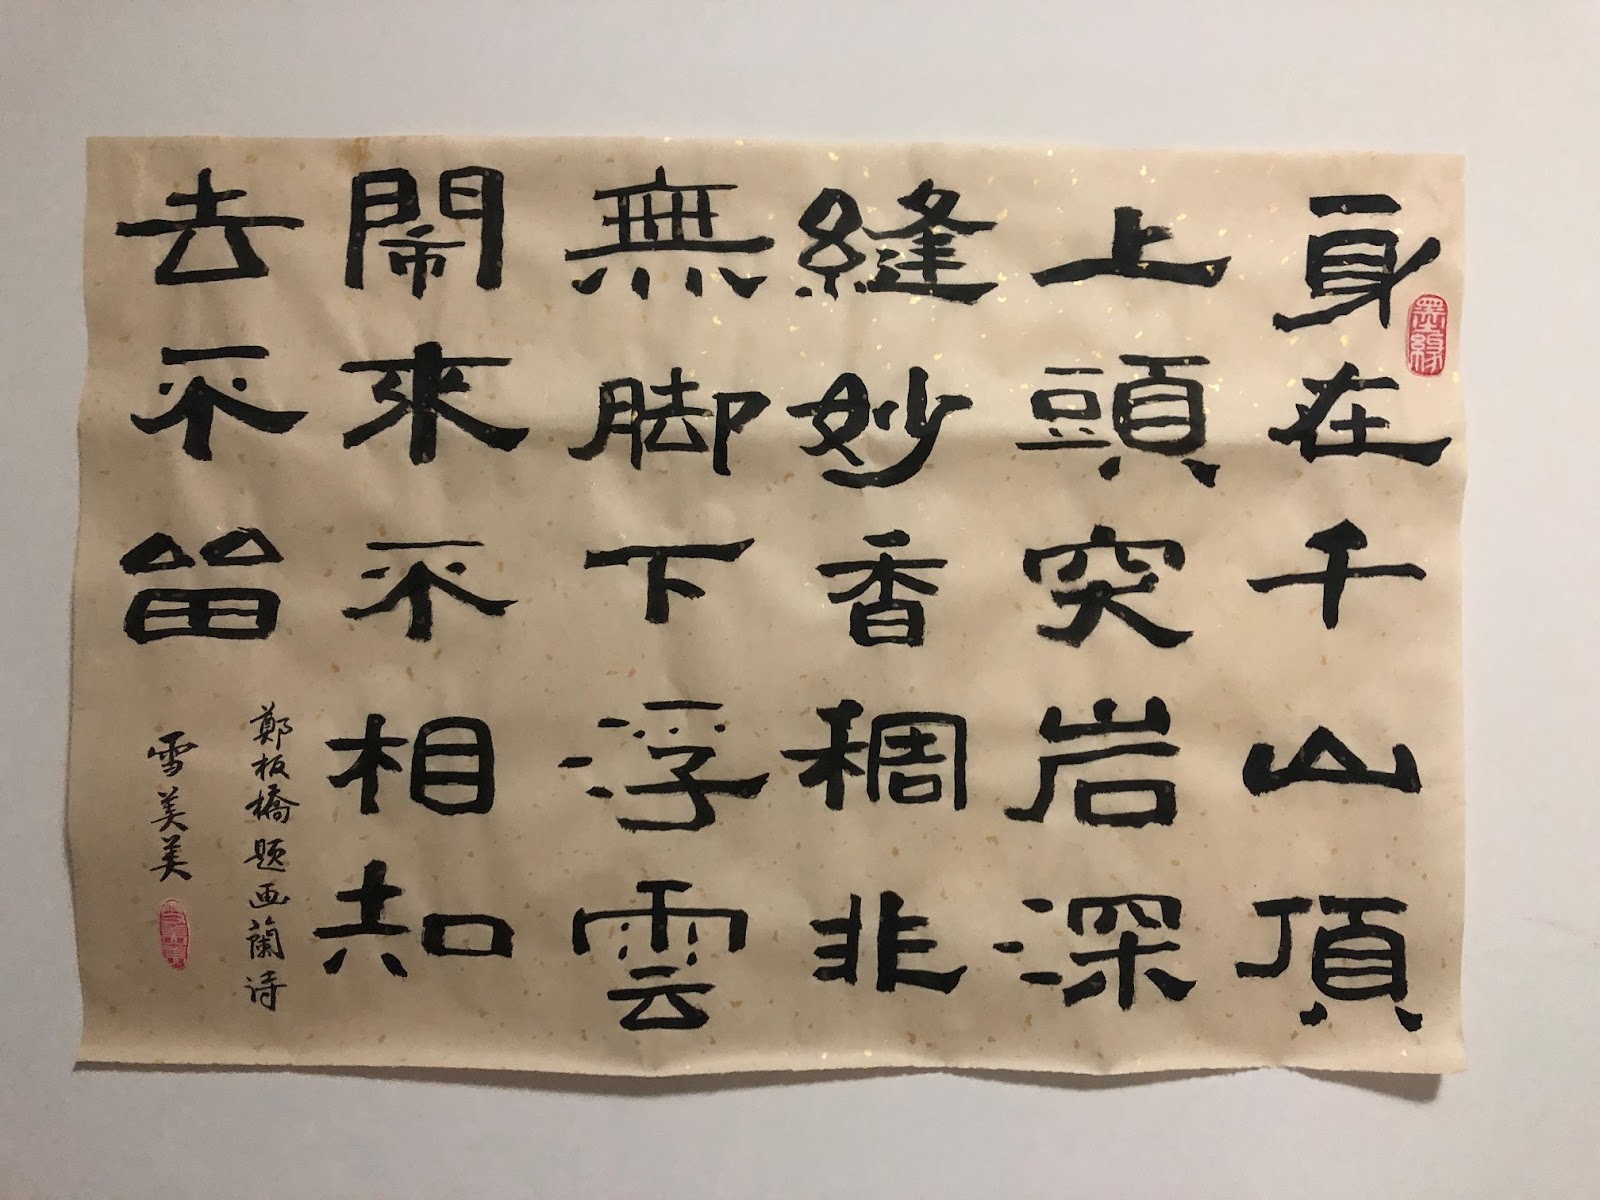 身在千山頂
上頭突岩深
縫妙香稠非
無脚下浮雲
閙來不相知
去不留
鄭板橋题画蘭诗
雪美美
墨緣